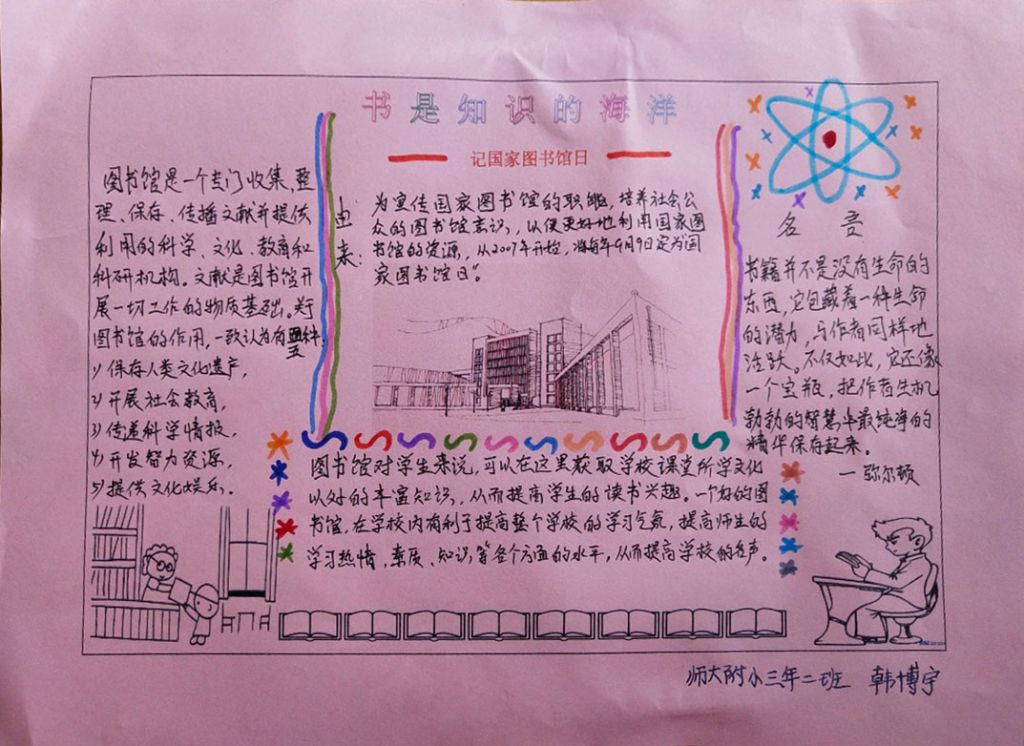 书是知识的海洋
记国家图书馆日
图书馆是一个专门收集、整
理、保存、传播文献并提供
利用的科学、文化、教育和
科研机构。文献是图书馆开
展一切工作的物质基础。关于
图书馆的作用,一致认为有五种
1)保存人类文化遗产,
2)开展社会教育,
3)传递科学情报,
4)开发智力资源,
5)提供文化娱乐。
由来:
为宣传国家图书馆的职能,培养社会公
众的图书馆意识,以便更好地利用国家图
书馆的资源,从2007年开始,将每年9月9日定为“国
家图书馆日”。
名言
书籍并不是没有生命的
东西,它包藏着一种生命
的潜力,与作者同样地
活跃。不仅如此,它还像
一个宝瓶,把作者生机
勃勃的智慧中最纯净的
精华保存起来。
—弥尔顿
图书馆对学生来说,可以在这里获取学校课堂所学文化
以外的丰富知识,从而提高学生的读书兴趣。一个好的图
书馆,在学校内有利于提高整个学校的学习气氛,提高师生的
学习热情、素质、知识,等各个方面的水平,从而提高学校的名声。
师大附小三年二班 韩博宇